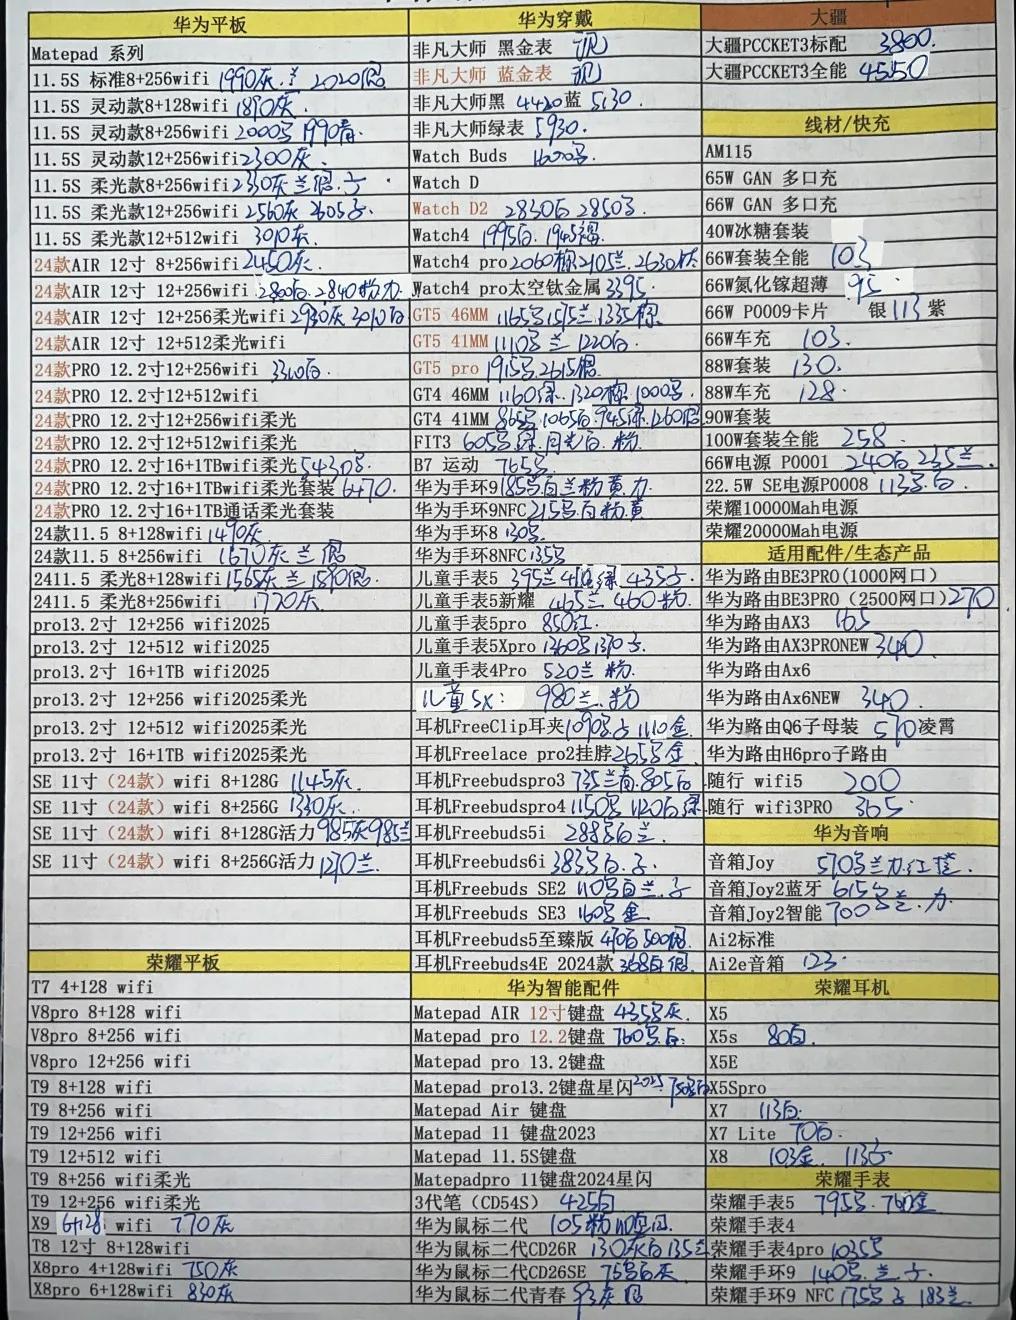 华为平板
Matepad 系列
11.5S 标准8+256wifi 1990灰.兰 2020银
11.5S 灵动款8+128wifi 1890灰
11.5S 灵动款8+256wifi 2000 1990青.
11.5S 灵动款12+256wifi 2300灰.
11.5S 柔光款8+256wifi
11.5S 柔光款12+256wifi 2560灰
11.5S 柔光款12+512wifi 3010灰.
24款AIR 12寸 8+256wifi 2450灰.
24款AIR 12寸 12+256wifi 2800白. 2840粉
24款AIR 12寸 12+256柔光wifi 2930灰 3010白
24款AIR 12寸 12+512柔光wifi
24款PRO 12.2寸12+256wifi
24款PRO 12.2寸12+512wifi
24款PRO 12.2寸12+256wifi柔光
24款PRO 12.2寸12+512wifi柔光
24款PRO 12.2寸16+1TBwifi柔光
24款PRO 12.2寸16+1TBwifi柔光套装 6470.
24款PRO 12.2寸16+1TB通话柔光套装
24款11.5 8+128wifi 1490灰
24款11.5 8+256wifi 1670灰 兰 银
2411.5 柔光8+128wifi 1565灰 兰 1590银.
2411.5 柔光8+256wifi 1770灰.
pro13.2寸 12+256 wifi2025
pro13.2寸 12+512 wifi2025
pro13.2寸 16+1TB wifi2025
pro13.2寸 12+256 wifi2025柔光
pro13.2寸 12+512 wifi2025柔光
pro13.2寸 16+1TB wifi2025柔光
SE 11寸（24款）wifi 8+128G 1145灰.
SE 11寸（24款）wifi 8+256G 1330灰.
SE 11寸（24款）wifi 8+128G活力 985灰 985兰
SE 11寸（24款）wifi 8+256G活力 1270兰.
荣耀平板
T7 4+128 wifi
V8pro 8+128 wifi
V8pro 8+256 wifi
V8pro 12+256 wifi
T9 8+128 wifi
T9 8+256 wifi
T9 12+256 wifi
T9 12+512 wifi
T9 8+256 wifi柔光
T9 12+256 wifi柔光
X9 6+128 wifi 770灰
T8 12寸 8+128wifi
X8pro 4+128wifi 750灰
X8pro 6+128wifi 830灰
华为穿戴
非凡大师 黑金表
非凡大师 蓝金表
非凡大师黑 4420蓝 5130.
非凡大师绿表 5930.
Watch Buds
Watch D
Watch D2 2830白 2850
Watch4 1995白.
Watch4 pro 2060棕 2105兰. 2630钛
Watch4 pro太空钛金属 3395.
GT5 46MM
GT5 41MM 1110 兰 1220白.
GT5 pro 1915
GT4 46MM 1160绿. 1320棕. 1000
GT4 41MM 865 1065白. 945绿. 1260银
FIT3 605 绿.月光白.粉
B7 运动 765
华为手环9 185 白兰粉黄.力
华为手环9NFC 215 白粉黄
华为手环8 130
华为手环8NFC 135
儿童手表5 395兰
儿童手表5新耀 465兰 460粉.
儿童手表5pro 850红.
儿童手表5Xpro 1360
儿童手表4Pro 520兰 粉.
儿童5X: 980兰.粉
耳机FreeClip耳夹 1090 1110金.
耳机Freelace pro2挂脖 265 金.
耳机Freebudspro3 735兰青.805白
耳机Freebudspro4 1150 1120白.绿
耳机Freebuds5i 288 白兰.
耳机Freebuds6i 383 白.
耳机Freebuds SE2 110 白兰.
耳机Freebuds SE3 160 金
耳机Freebuds5至臻版 470白 500银.
耳机Freebuds4E 2024款 368白 银.
华为智能配件
Matepad AIR 12寸键盘 435 灰.
Matepad pro 12.2键盘 760 白.
Matepad pro 13.2键盘
Matepad pro13.2键盘星闪 2025
Matepad Air 键盘
Matepad 11 键盘2023
Matepad 11.5S键盘
Matepadpro 11键盘2024星闪
3代笔（CD54S） 425白
华为鼠标二代 105粉
华为鼠标二代CD26R 130灰白 135兰
华为鼠标二代CD26SE 75 白灰
华为鼠标二代青春 93灰 银
大疆
大疆PCCKET3标配 3800.
大疆PCCKET3全能 4550
线材/快充
AM115
65W GAN 多口充
66W GAN 多口充
40W冰糖套装
66W套装全能 103
66W氮化镓超薄 95.
66W P0009卡片 银113紫
66W车充 103.
88W套装 130.
88W车充 128.
90W套装
100W套装全能 258.
66W电源 P0001 240白 235兰.
22.5W SE电源P0008 113 白.
荣耀10000Mah电源
荣耀20000Mah电源
适用配件/生态产品
华为路由BE3PRO(1000网口)
华为路由BE3PRO（2500网口）270
华为路由AX3 165
华为路由AX3PRONEW 340
华为路由Ax6
华为路由Ax6NEW 340.
华为路由Q6子母装 570凌霄
华为路由H6pro子路由
随行 wifi5 200
随行 wifi3PRO 365.
华为音响
音箱Joy 570 兰力.红
音箱Joy2蓝牙 615 兰.力.
音箱Joy2智能 700
Ai2标准
Ai2e音箱 123.
荣耀耳机
X5
X5s 80白.
X5E
X5Spro
X7 113白.
X7 Lite 70白.
X8 103金.
荣耀手表
荣耀手表5 795 760金
荣耀手表4
荣耀手表4pro 1035
荣耀手环9 140 兰
荣耀手环9 NFC 175 183兰.